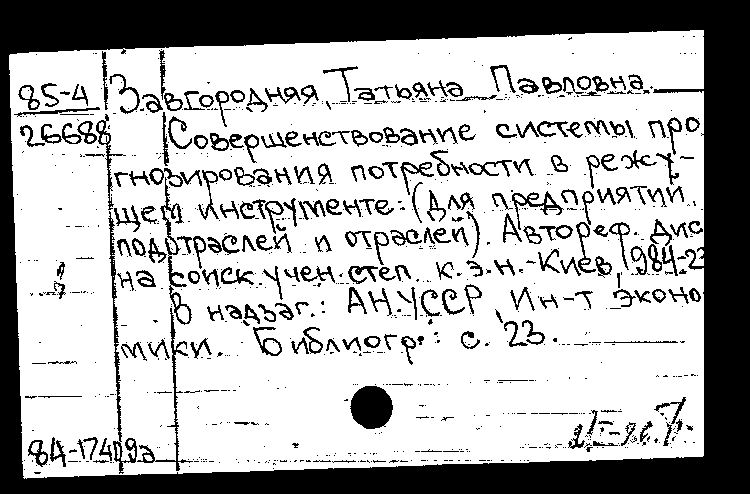 85-4 Завгородняя, Татьяна Павловна.
26688 Совершенствование системы про
гнозирования потребности в режу-
щем инструменте: (для предприятий,
подотраслей и отраслей). Автореф. дис
на соиск. учен. степ. к.э.н. - Киев, 1984.-23
В надзаг.: АН УССР, Ин-т эконо
мики. Библиогр.: с. 23.
84-17409а